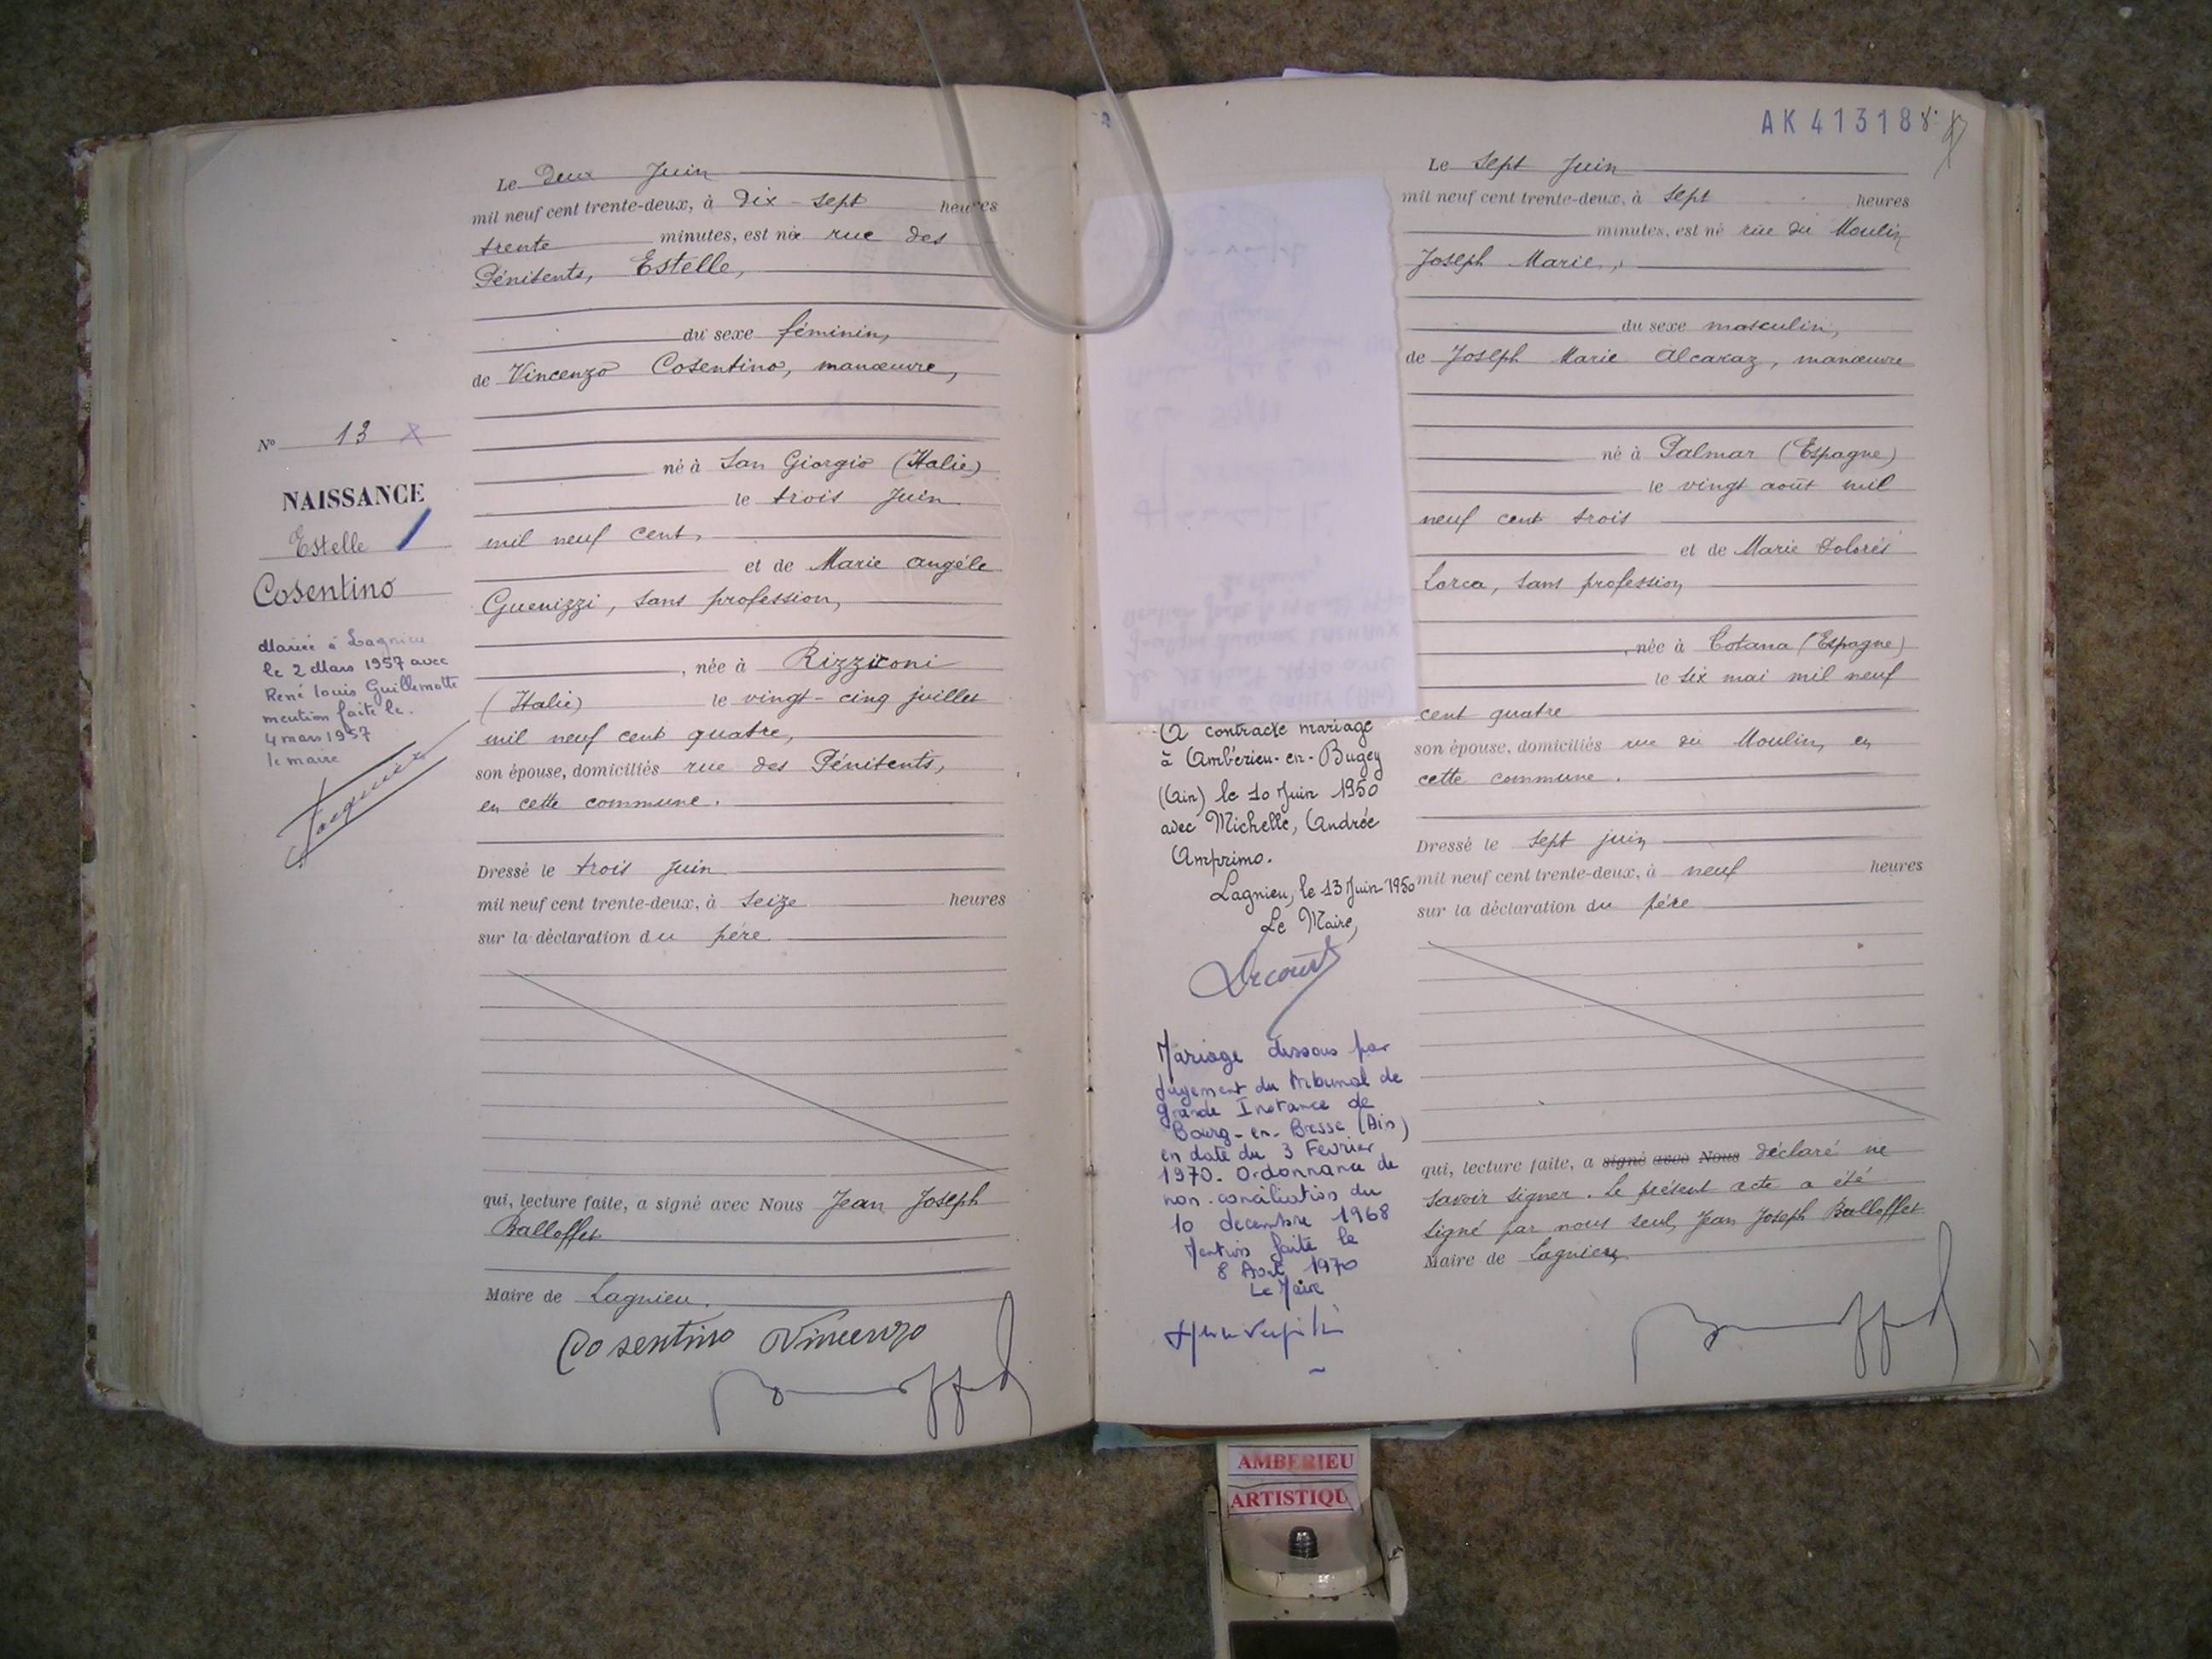 Le Deux Juin
mil neuf cent trente-deux, à Dix-sept heures
trente minutes, est née rue des
Pénitents, Estelle,
du sexe féminin,
de Vincenzo Cosentino, manœuvre,
né à San Giorgio (Italie)
le trois Juin
mil neuf cent,
et de Marie Angéle
Guerizzi, sans profession,
, née à Rizziconi
(Italie) le vingt-cinq juillet
mil neuf cent quatre,
son épouse, domiciliés rue des Pénitents,
en cette commune.
Dressé le trois juin
mil neuf cent trente-deux, à seize heures
sur la déclaration du père
qui, lecture faite, a signé avec Nous Jean Joseph
Balloffet
Maire de Lagnieu.
Cosentino Vincenzo
N° 13
NAISSANCE
Estelle
Cosentino
Mariée à Lagnieu
le 2 Mars 1957 avec
René louis Guillemotte
mention faite le.
4 mars 1957
le maire
AK 41318
Le Sept Juin
mil neuf cent trente-deux, à sept heures
minutes, est né rue du Moulin
Joseph Marie,
du sexe masculin,
de Joseph Marie Alcaraz, manœuvre
né à Palmar (Espagne)
le vingt août mil
neuf cent trois
et de Marie Dolorés
Lorca, sans profession
, née à Totana (Espagne)
le six mai mil neuf
cent quatre
son épouse, domiciliés rue du Moulin, en
cette commune.
Dressé le sept juin
mil neuf cent trente-deux, à neuf heures
sur la déclaration du père
qui, lecture faite, a signé avec Nous déclaré ne
savoir signer. Le présent acte a été
signé par nous seul, Jean Joseph Balloffet
Maire de Lagnieu
A contracté mariage
à Ambérieu-en-Bugey
(Ain) le 10 Juin 1950
avec Michelle, Andrée
Amprimo.
Lagnieu, le 13 Juin 1950
Le Maire,
Mariage dissous par
jugement du tribunal de
grande Instance de
Bourg-en-Bresse (Ain)
en date du 3 Fevrier
1970. Ordonnance de
non-conciliation du
10 decembre 1968
Mention faite le
8 Août 1970
Le Maire
AMBERIEU
ARTISTIQU